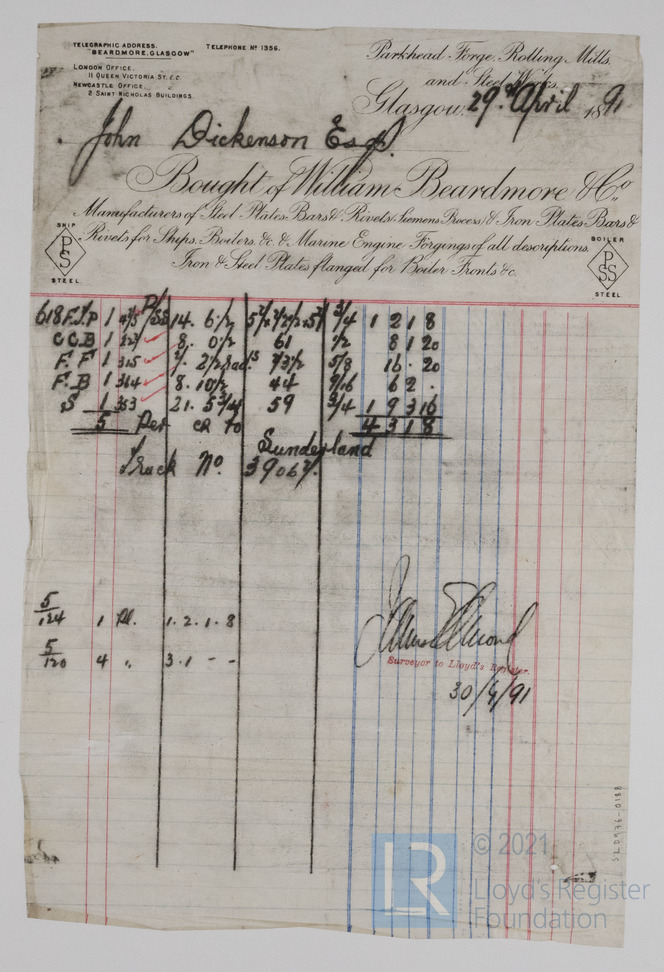 TELEGRAPHIC ADDRESS.
"BEARDMORE, GLASGOW"
TELEPHONE Nº 1356.
LONDON OFFICE.
11 QUEEN VICTORIA ST. E.C.
NEWCASTLE OFFICE.
2 SAINT NICHOLAS BUILDINGS.
Parkhead Forge, Rolling Mills,
and Steel Works,
Glasgow, 29th April 1891
John Dickenson Esq.
Bought of William Beardmore & Co.
Manufacturers of Steel Plates, Bars & Rivets (Siemens Process) & Iron Plates, Bars &
Rivets for Ships, Boilers &c. & Marine Engine Forgings of all descriptions.
Iron & Steel Plates flanged for Boiler Fronts &c.
SHIP
PS
STEEL.
BOILER
PSS
STEEL.
P/SS
618 1 14. 6 1/2 3/4 1 2 1 8
C C B 1 8. 0 1/2 61 1/2 8 1 20
F. F 1 315 5/8 16 . 20
F. B 1 364 8. 10 1/2 44 9/16 6 2 .
S 1 353 21. 5 3/4 59 3/4 1 9 3 16
5 Per CR to 4 3 1 8
Sunderland
Truck No.
5/124 1 Pl. 1. 2. 1. 8
5/120 4 " 3. 1 - -
Surveyor to Lloyd's Register.
30/4/91
SLD976-0188
LR
© 2021
Lloyd's Register
Foundation